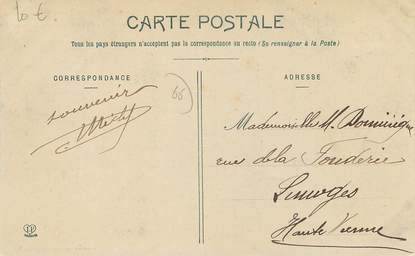 10 €
CARTE POSTALE
Tous les pays étrangers n'acceptent pas la correspondance au recto (Se renseigner à la Poste)
CORRESPONDANCE
ADRESSE
souvenir
55
Mademoiselle M. Dominique
rue de la Fonderie
Limoges
Haute Vienne